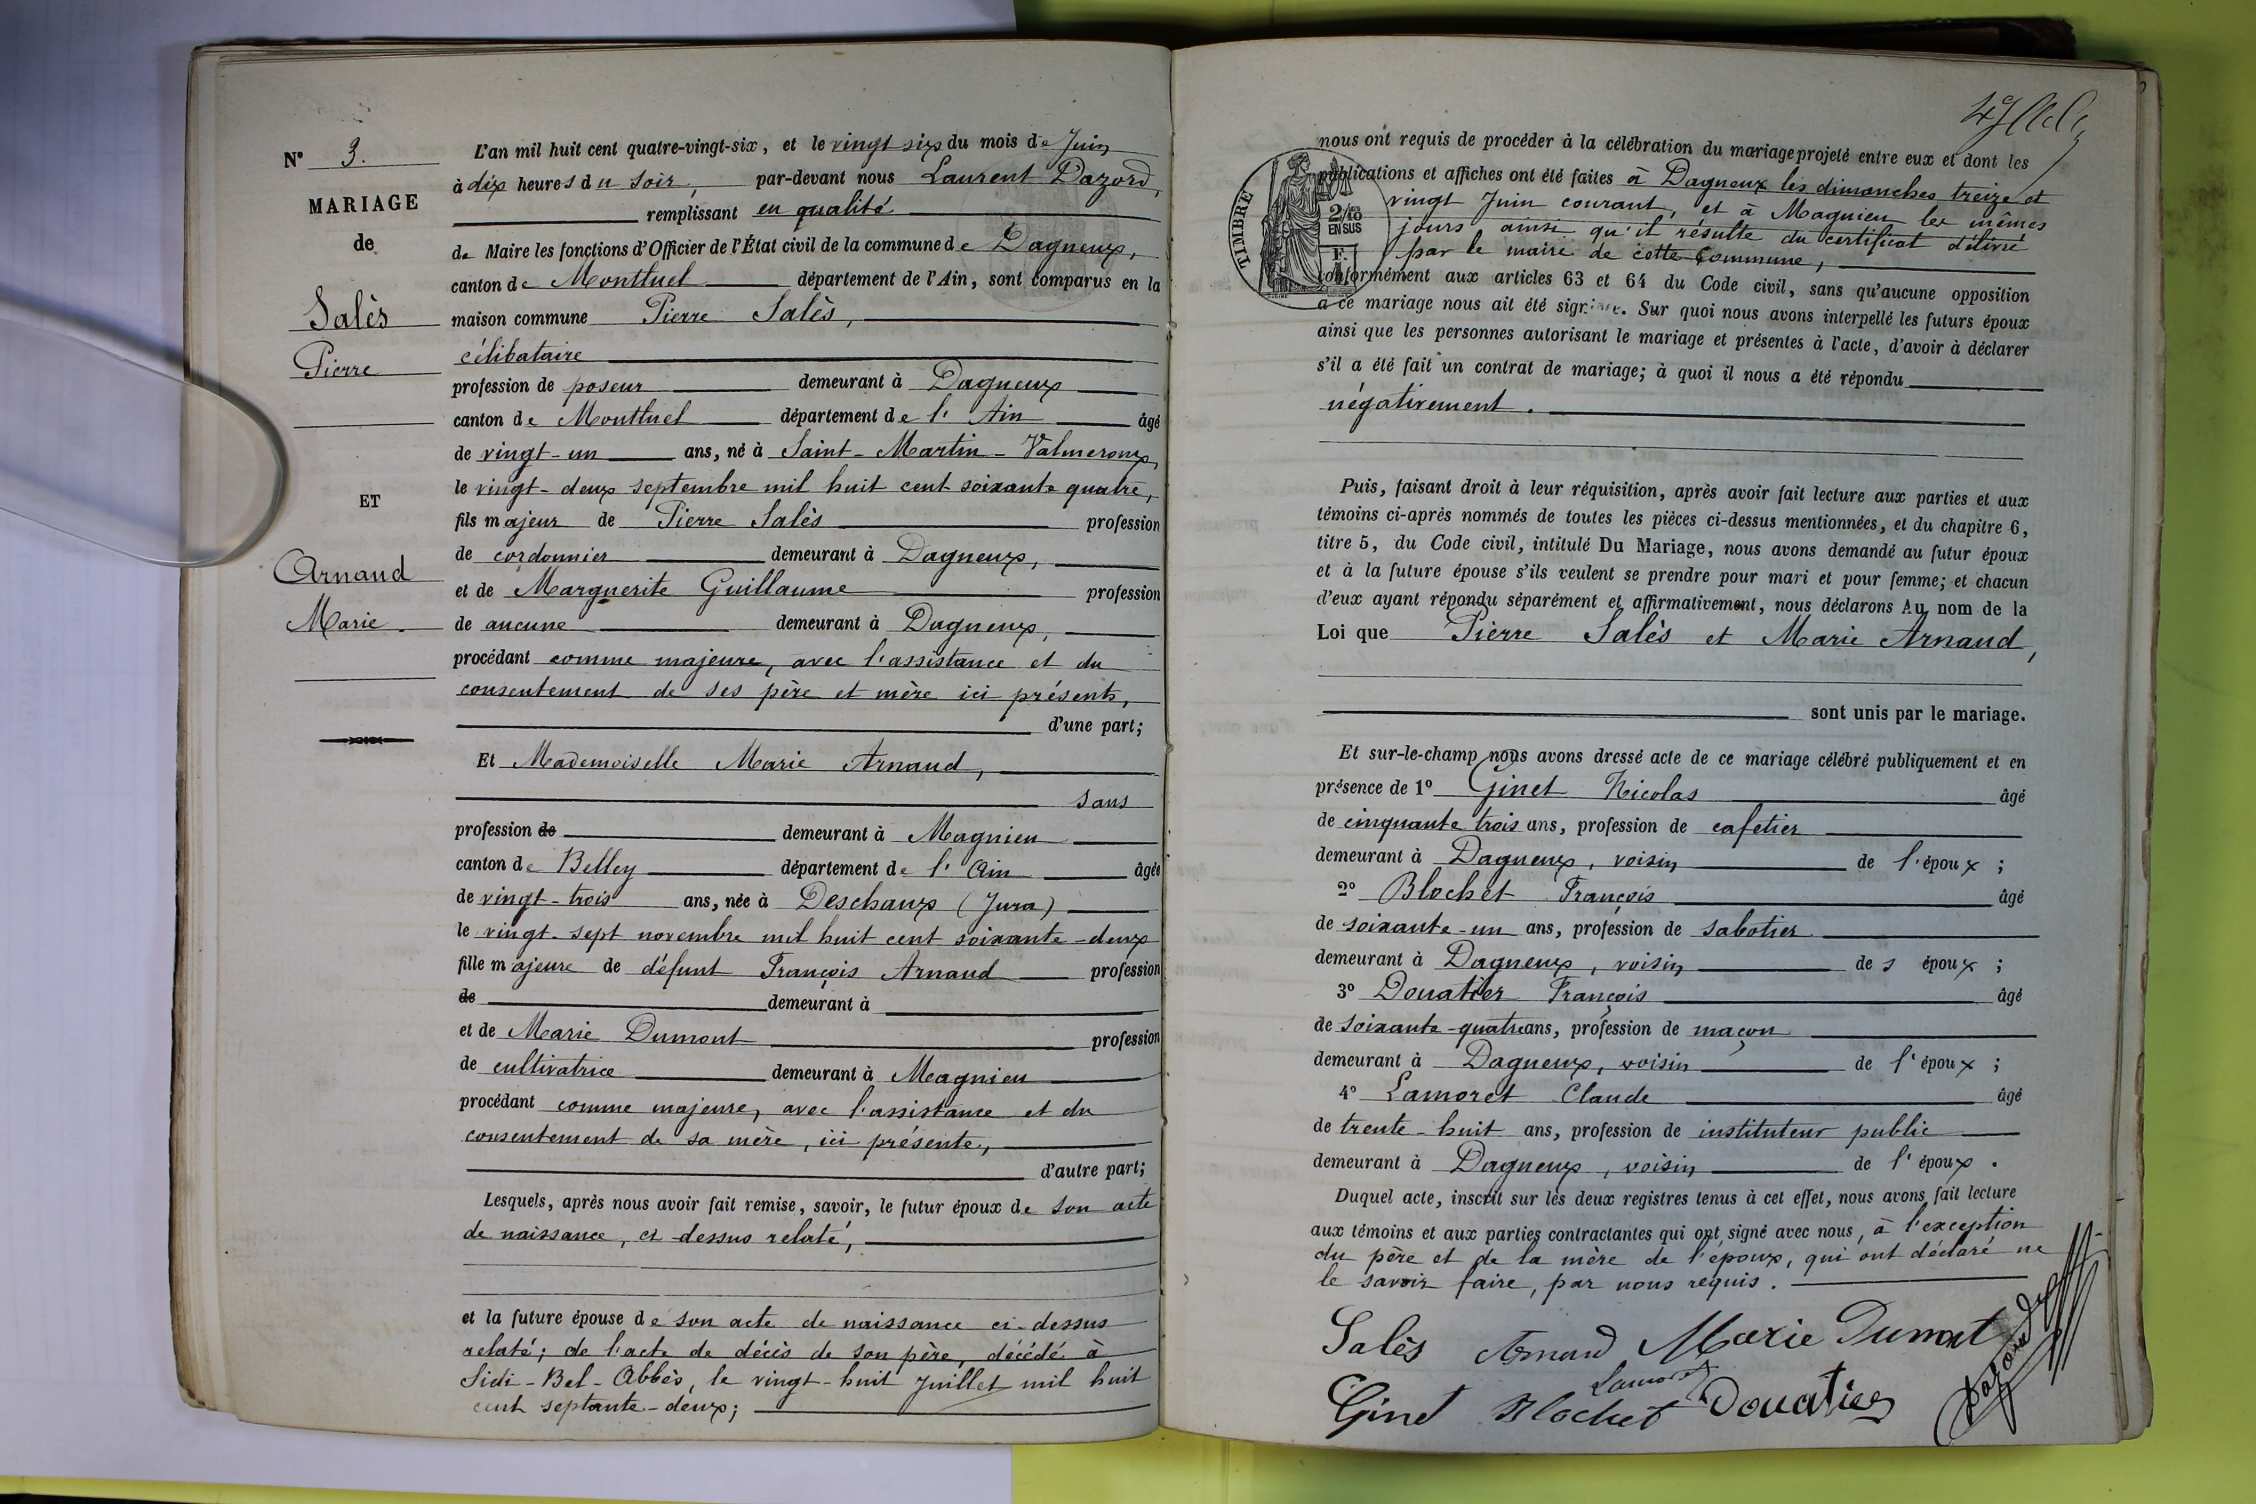 N° 3.
MARIAGE
de
Salès
Pierre
ET
Arnaud
Marie.
L'an mil huit cent quatre-vingt-six, et le vingt six du mois de Juin
à dix heures du soir, par-devant nous Laurent Dazord,
remplissant en qualité
de Maire les fonctions d'Officier de l'État civil de la commune de Dagneux,
canton de Montluel département de l'Ain, sont comparus en la
maison commune Pierre Salès,
célibataire
profession de poseur demeurant à Dagneux
canton de Montluel département de l'Ain âgé
de vingt-un ans, né à Saint-Martin-Valmeroux,
le vingt-deux septembre mil huit cent soixante quatre,
fils majeur de Pierre Salès profession
de cordonnier demeurant à Dagneux,
et de Marguerite Guillaume profession
de aucune demeurant à Dagneux,
procédant comme majeure, avec l'assistance et du
consentement de ses père et mère ici présents,
d'une part;
Et Mademoiselle Marie Arnaud,
sans
profession de demeurant à Magnieu
canton de Belley département de l'Ain âgée
de vingt-trois ans, née à Deschaux (Jura)
le vingt-sept novembre mil huit cent soixante-deux
fille majeure de défunt François Arnaud profession
de demeurant à
et de Marie Dumont profession
de cultivatrice demeurant à Magnieu
procédant comme majeure, avec l'assistance et du
consentement de sa mère, ici présente,
d'autre part;
Lesquels, après nous avoir fait remise, savoir, le futur époux de son acte
de naissance, ci-dessus relaté,
et la future épouse de son acte de naissance ci-dessus
relaté; de l'acte de décès de son père, décédé à
Sidi-Bel-Abbès, le vingt-huit Juillet mil huit
cent septante-deux;
nous ont requis de procéder à la célébration du mariage projeté entre eux et dont les
publications et affiches ont été faites à Dagneux les dimanches treize et
vingt Juin courant, et à Magnieu les mêmes
jours ainsi qu'il résulte du certificat délivré
par le maire de cette commune,
conformément aux articles 63 et 64 du Code civil, sans qu'aucune opposition
à ce mariage nous ait été signifiée. Sur quoi nous avons interpellé les futurs époux
ainsi que les personnes autorisant le mariage et présentes à l'acte, d'avoir à déclarer
s'il a été fait un contrat de mariage; à quoi il nous a été répondu
négativement.
TIMBRE
2/10es
EN SUS
Puis, faisant droit à leur réquisition, après avoir fait lecture aux parties et aux
témoins ci-après nommés de toutes les pièces ci-dessus mentionnées, et du chapitre 6,
titre 5, du Code civil, intitulé Du Mariage, nous avons demandé au futur époux
et à la future épouse s'ils veulent se prendre pour mari et pour femme; et chacun
d'eux ayant répondu séparément et affirmativement, nous déclarons Au nom de la
Loi que Pierre Salès et Marie Arnaud,
sont unis par le mariage.
Et sur-le-champ nous avons dressé acte de ce mariage célébré publiquement et en
présence de 1° Ginet Nicolas âgé
de cinquante trois ans, profession de cafetier
demeurant à Dagneux, voisin de l'époux;
2° Blochet François âgé
de soixante-un ans, profession de sabotier
demeurant à Dagneux, voisin des époux;
3° Douatier François âgé
de soixante-quatre ans, profession de maçon
demeurant à Dagneux, voisin de l'époux;
4° Lamoret Claude âgé
de trente-huit ans, profession de instituteur public
demeurant à Dagneux, voisin de l'époux.
Duquel acte, inscrit sur les deux registres tenus à cet effet, nous avons fait lecture
aux témoins et aux parties contractantes qui ont signé avec nous, à l'exception
du père et de la mère de l'époux, qui ont déclaré ne
le savoir faire, par nous requis.
Salès Arnaud Marie Dumont
Lamoret
Ginet Blochet Douatier
Dazord